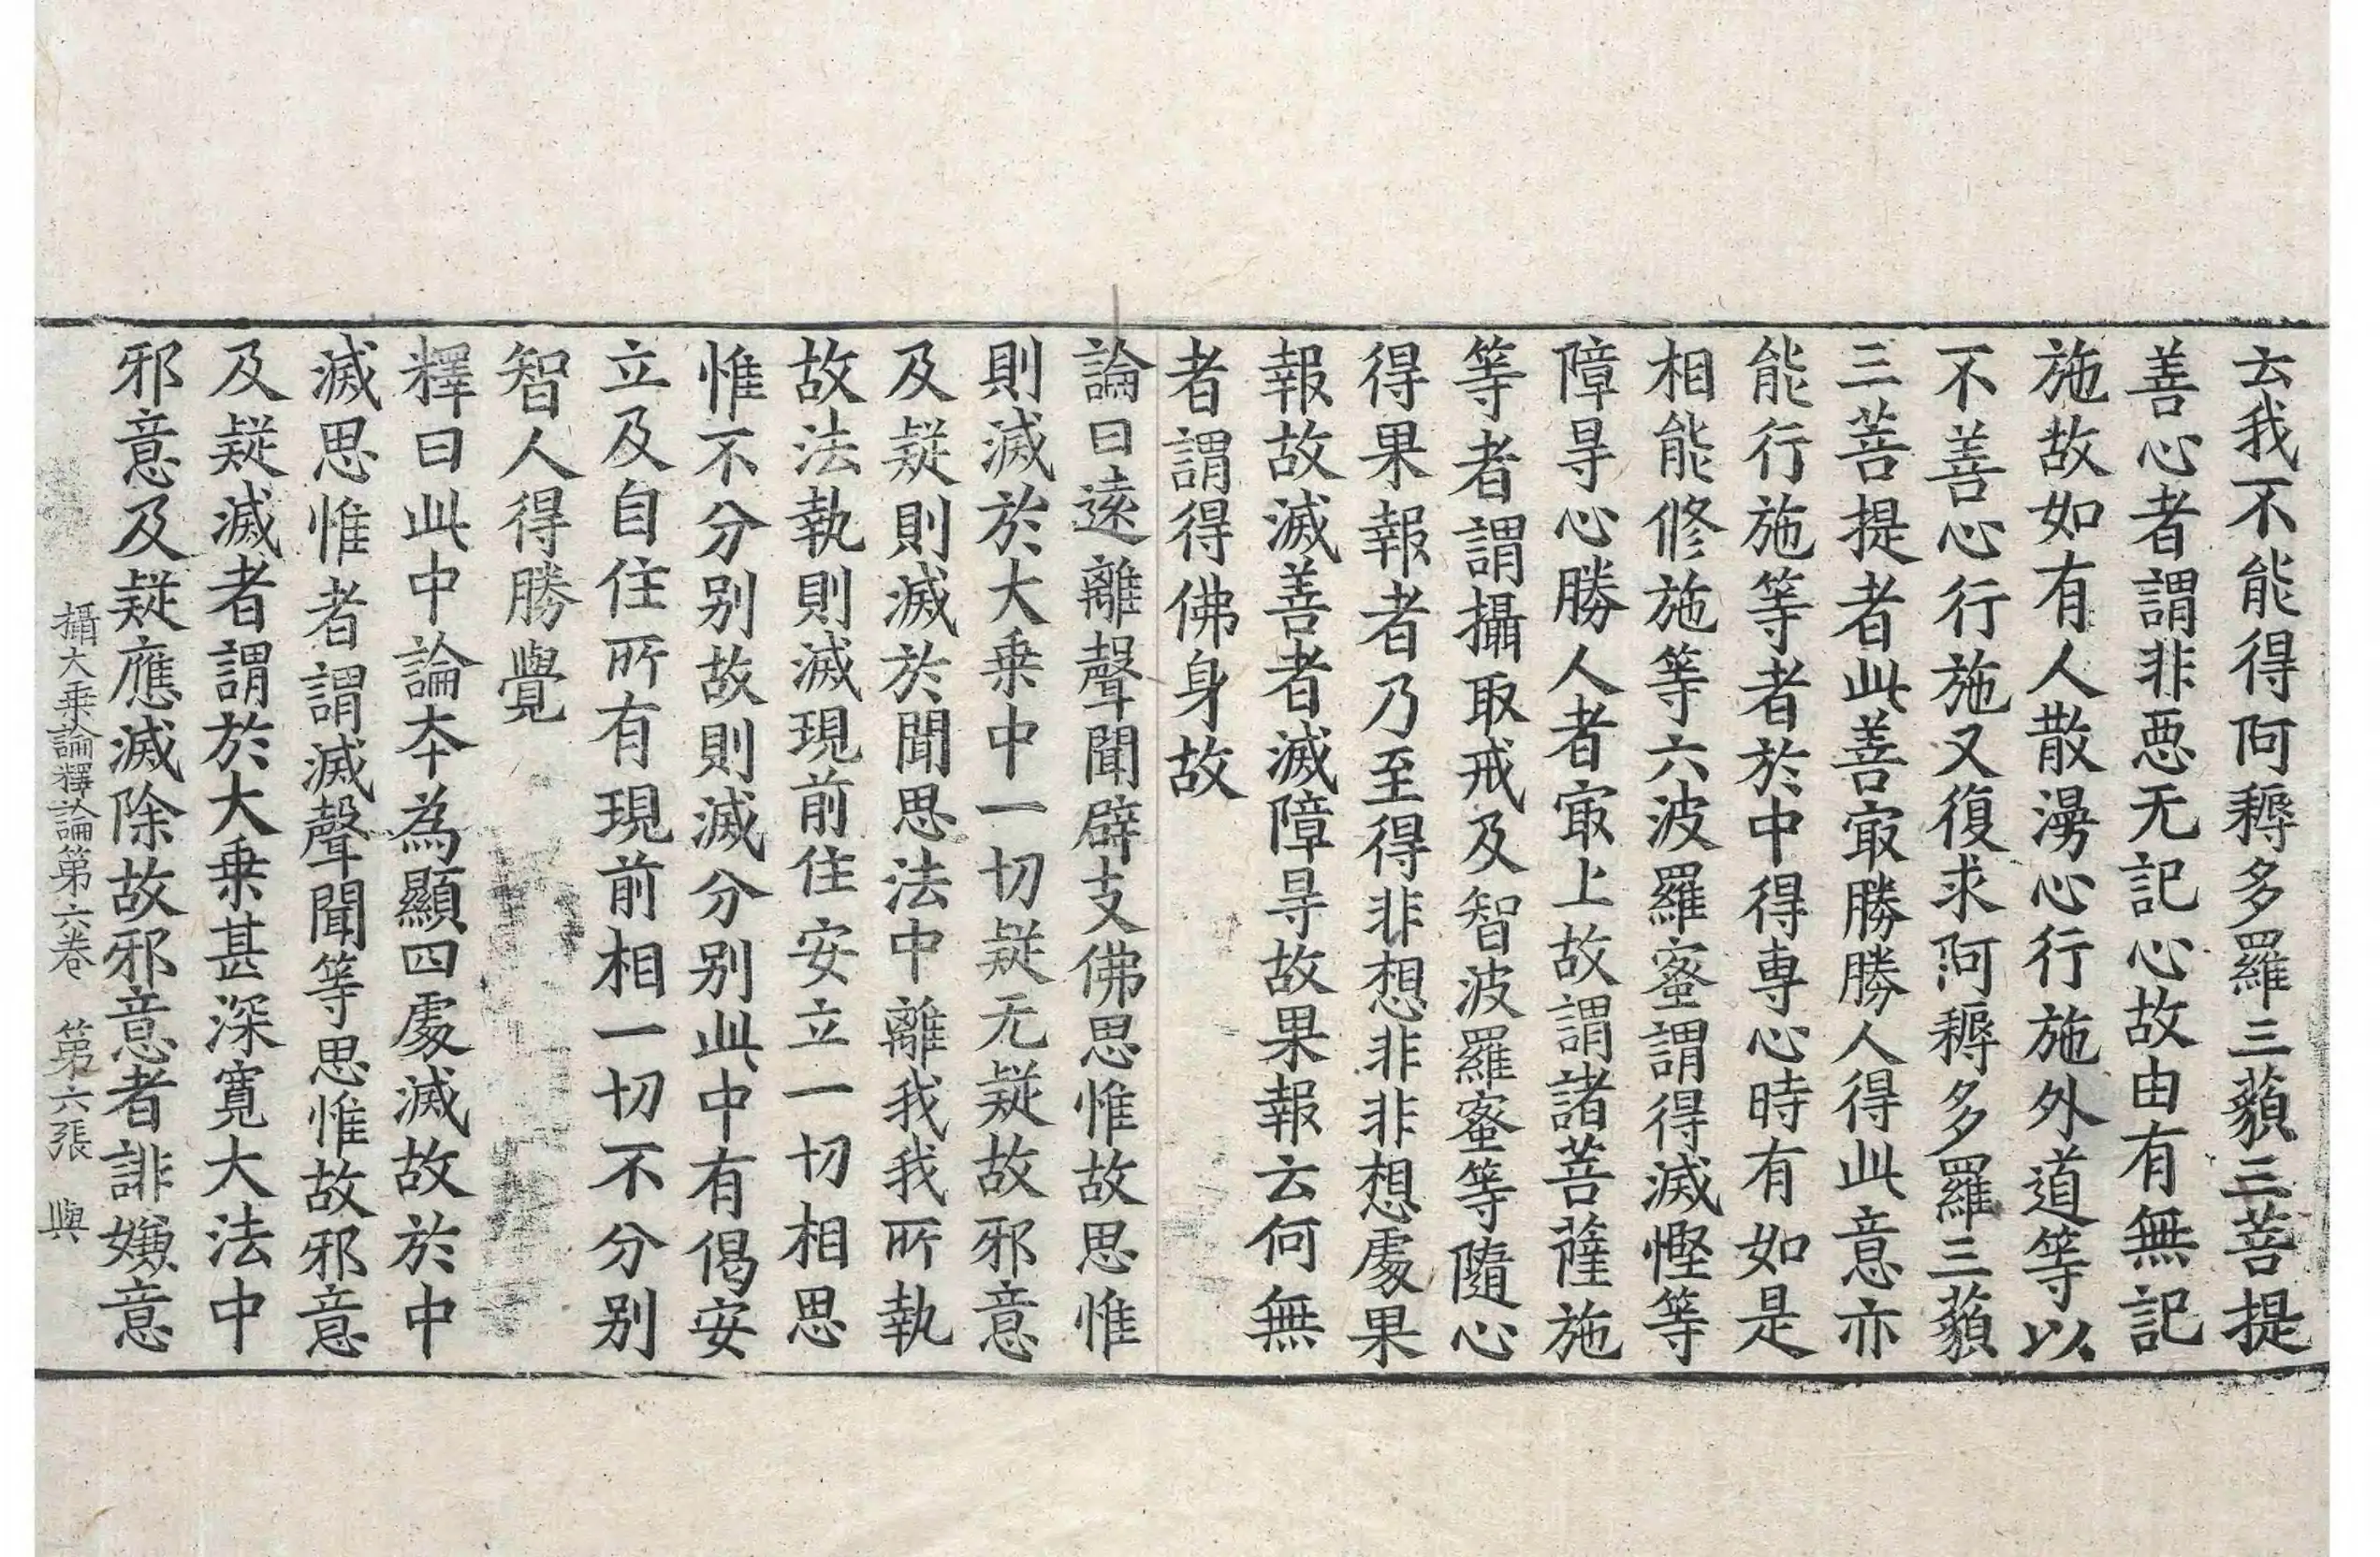 云我不能得阿耨多羅三藐三菩提
善心者謂非惡无記心故由有無記
施故如有人散漫心行施外道等以
不善心行施又復求阿耨多羅三藐
三菩提者此善㝡勝勝人得此意亦
能行施等者於中得專心時有如是
相能修施等六波羅蜜謂得滅慳等
障㝵心勝人者㝡上故謂諸菩薩施
等者謂攝取戒及智波羅蜜等隨心
得果報者乃至得非想非非想處果
報故滅善者滅障㝵故果報云何無
者謂得佛身故
論曰遠離聲聞辟支佛思惟故思惟
則滅於大乗中一切疑无疑故邪意
及疑則滅於聞思法中離我我所執
故法執則滅現前住安立一切相思
惟不分别故則滅分别此中有偈安
立及自住所有現前相一切不分别
智人得勝覺
釋曰此中論夲為顯四處滅故於中
滅思惟者謂滅聲聞等思惟故邪意
及疑滅者謂於大乗甚深寬大法中
邪意及疑應滅除故邪意者誹嫌意
攝大乗論釋論第六卷 第六張 與